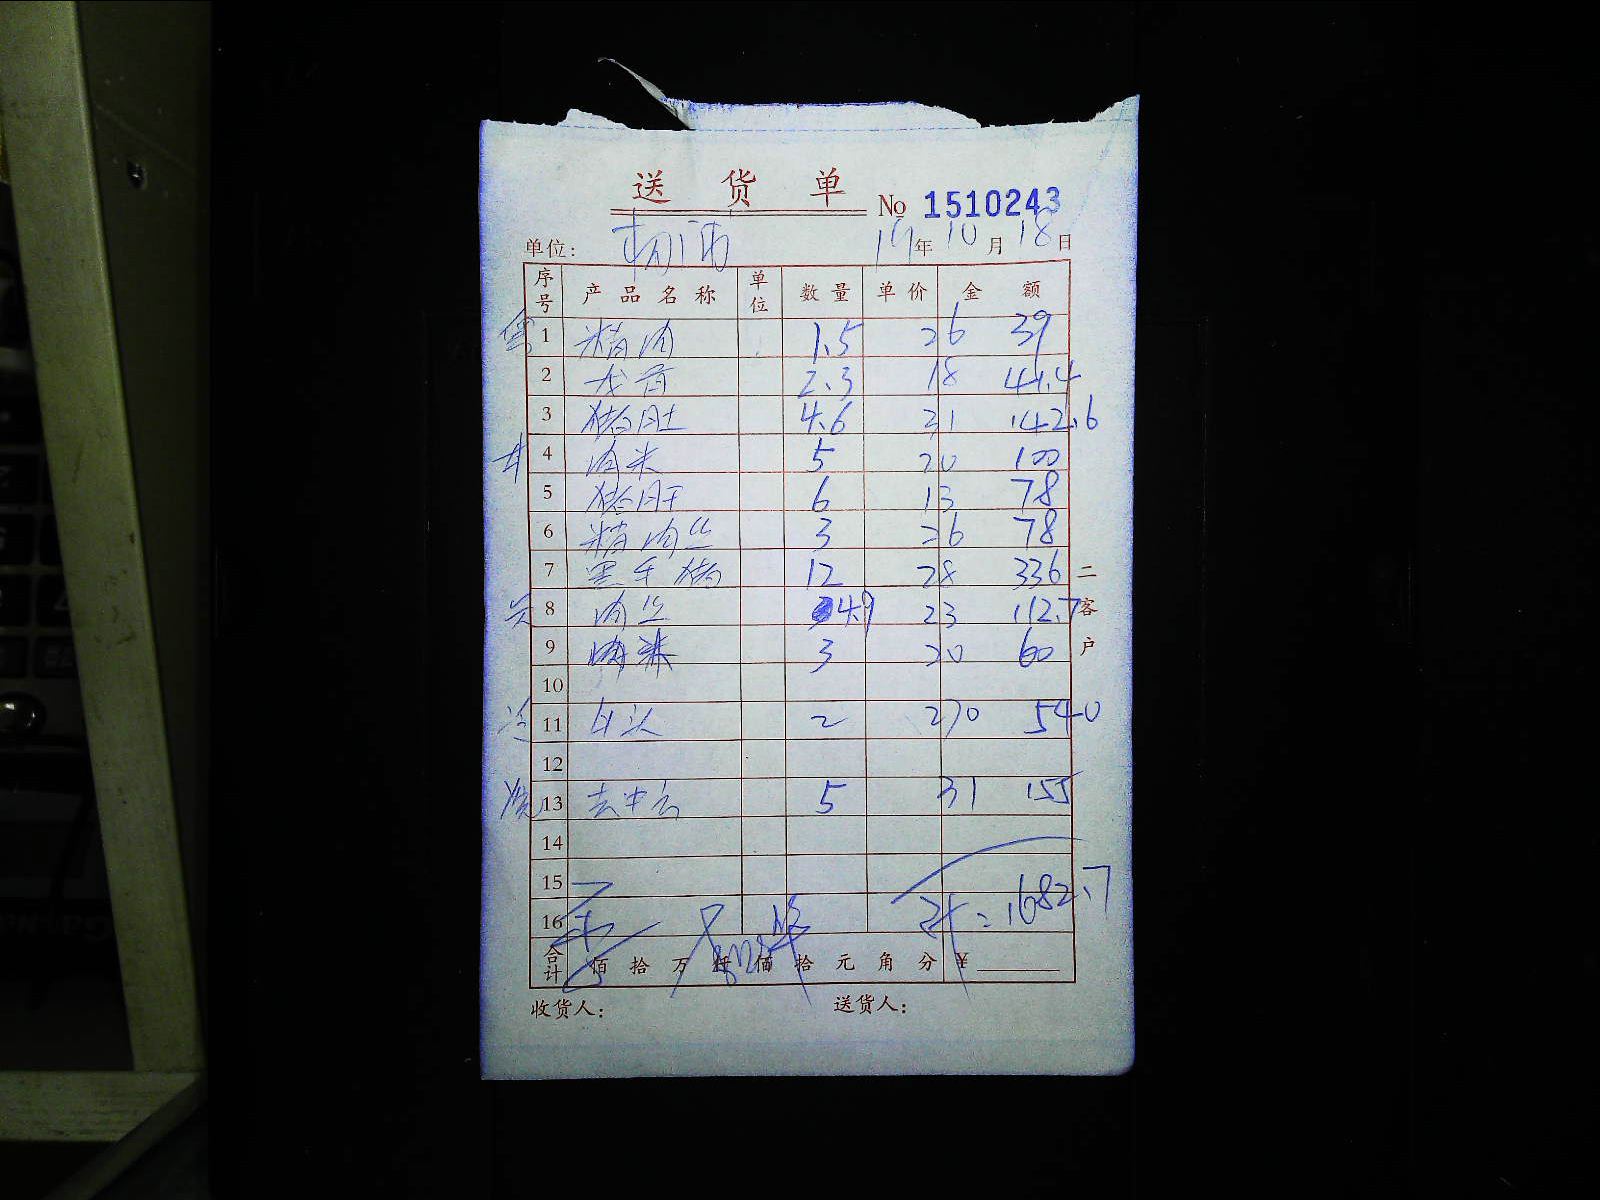 送货单 № 1510243
单位: 19年10月18日
序号 产品名称 单位 数量 单价 金额
1 精肉 1.5 26 39
2 龙骨 2.3 18 41.4
3 猪肚 4.6 31 142.6
4 肉米 5 20 100
5 猪肝 6 13 78
6 精肉丝 3 26 78
7 黑毛猪 12 28 336
8 肉丝 4.9 23 112.7
9 3 20 60
10
11 2 270 540
12
13 5 31 155
14
15
16 计: 1682.7
合计 佰拾万仟佰拾元角分 ¥
收货人: 送货人:
二客户